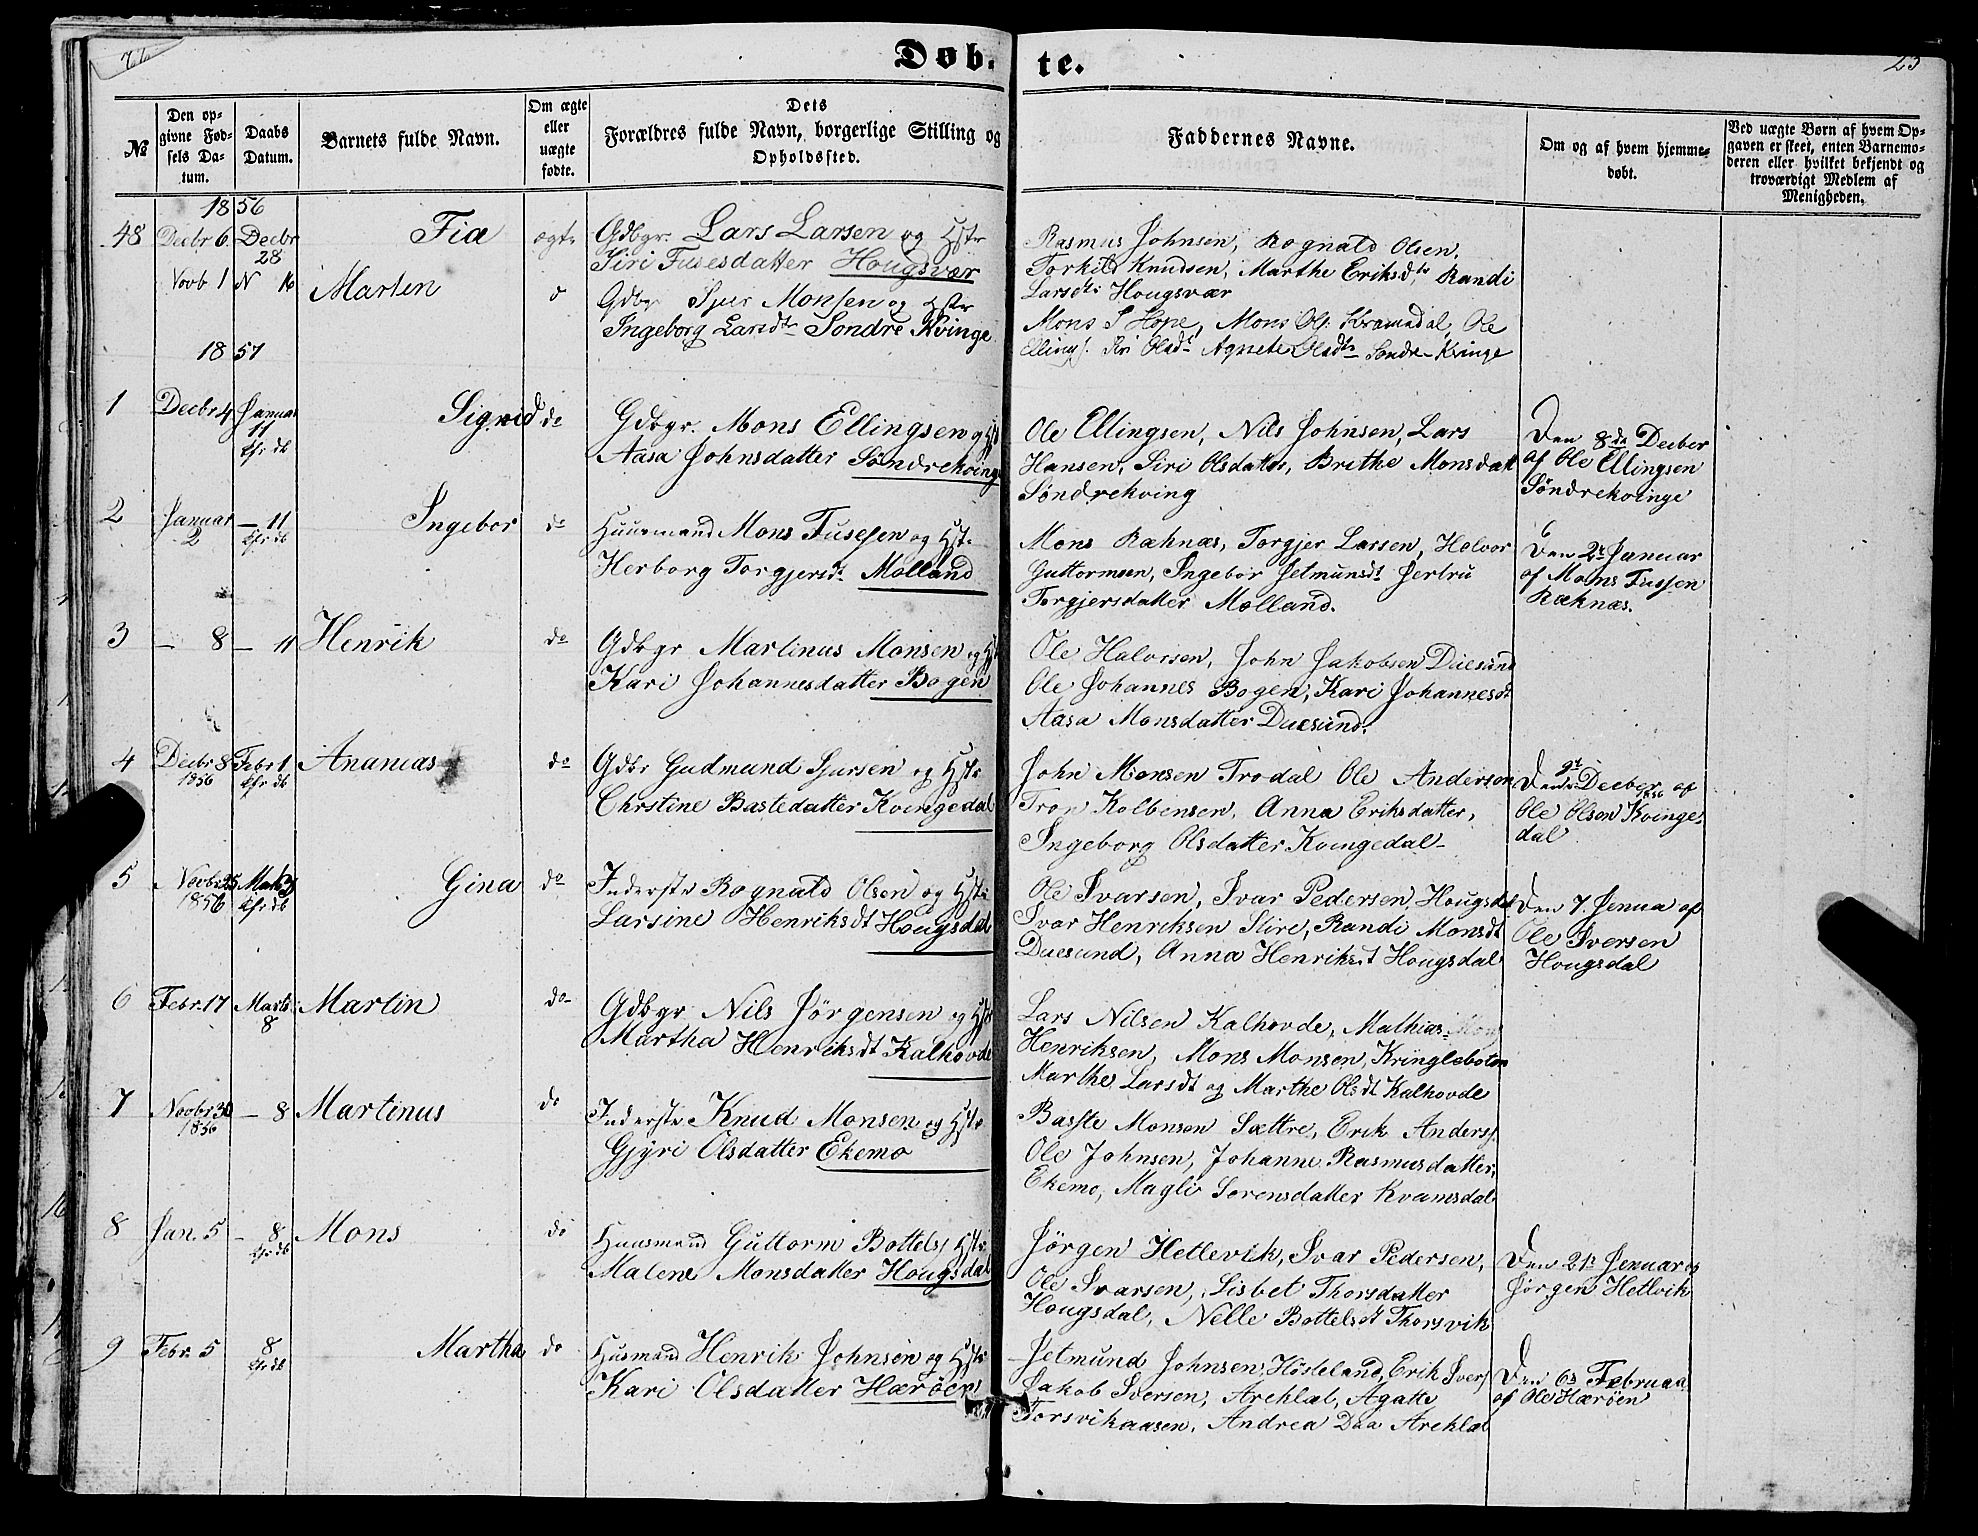 Døb-
te.
23
No
Den op-
givne Fød-
sels Da-
tum.
Daabs
Datum.
Barnets fulde Navn.
Om ægte
eller
uægte
fødte.
Dets
Forældres fulde Navn, borgerlige Stilling og
Opholdssted.
Faddernes Navne.
Om og af hvem hjemme-
døbt.
Ved uægte Børn af hvem Op-
gaven er skeet, enten Barnemo-
deren eller hvilket bekjendt og
troværdigt Medlem af
Menigheden.
1856
48 Decbr 6 Decbr 28 Fia ægte Gdbgr. Lars Larsen og Hstr
Siri Fusesdatter Hougsvær
Rasmus Johnsen, Rognald Olsen,
Torkild Knudsen, Marthe Eriksdtr, Randi
Larsdtr Hougsvær
Novb 1 N 16 Marten d Gdbgr Sjur Monsen og Hstr
Ingeborg Larsdtr Søndre Kvinge
Mons S Hope, Mons Ols. Kramsdal, Ole
Ellings. Siri Olsdt Agnete Olsdtr Søndre-Kvinge
1857
1 Decbr 4 Januar 11 Kfr db Sigrid do Gdbgr. Mons Ellingsen og Hst
Aasa Johnsdatter Søndrekvinge
Ole Ellingsen, Nils Johnsen, Lars
Hansen, Siri Olsdatter, Brithe Monsdatt
Søndrekving
Den 8de Decber
af Ole Ellingsen
Søndrekvinge
2 Januar 2 — 11 Kfr db Ingebor do Huusmand Mons Fusesen og Hst.
Herborg Torgjersdt. Mølland
Mons Raknæs, Torgjer Larsen, Halvor
Guttormsen, Ingebor Jetmunsdt Jertru
Torgjersdatter Mølland.
Den 2t Januar
af Mons Fussen
Raknæs.
3 — 8 — 11 Henrik do Gdbgr Martinus Monsen og Hst
Kari Johannesdatter Bogen
Ole Halvorsen, John Jakobsen Duesund
Ole Johannes Bogen, Kari Johannesdt
Aasa Monsdatter Duesund.
4 Decbr 8 1856 Febr 1 Kfr db Ananias do Gdbr Gudmund Sjursen og Hstr
Chrstine Bastedatter Kvingedal
John Monsen Trodal Ole Anderson
Tron Kolbensen, Anna Eriksdatter,
Ingeborg Olsdatter Kvingedal-
Den 9t Decber 1856 af
Ole Olsen Kvinge-
dal
5 Novbr 25 1856 Kfr db Gina do Inderste Rognald Olsen og Hstr
Larsine Henriksdt Hougsdal
Ole Ivarsen, Ivar Pedersen, Hougsdal
Ivar Henriksen Stire, Randi Monsdt
Duesund, Anna Henriksdt Hougsdal
Den 7. Jenua af
Ole Iversen
Hougsdal
6 Febr. 17 Marts 8 Martin do Gdbgr Nils Jørgensen og Hst
Martha Henriksdt Kalhovde
Lars Nilsen Kalhovde, Mathias
Henriksen, Mons Monsen, Kringleboten
Marthe Larsdt og Marthe Olsdt Kalhovde
7 Novbr 30 1856 — 8 Martinus do Inderste Knud Monsen og Hstr
Gjyri Olsdatter Ekemo
Basste Monsen Sættre, Erik Anders.
Ole Johnsen, Johanne Rasmusdatter,
Ekemo, Magli Sørensdatter Kvamsdal
8 Jan. 5 — 8 Kfr db Mons do Huusmand Guttorm Bottels. Hst.
Malene Monsdatter Hougsdal
Jørgen Hetlevik, Ivar Pedersen,
Ole Ivarsen, Lisbet Thorsdatter
Hougsdal, Nelle Bottelsdt Thorsvik
Den 21 Jenuar
Jørgen Hetlvik
9 Febr. 5 8 Kfr db Martha do Husmand Henrik Johnsen og Hst
Kari Olsdatter Hærøen
Jetmund Johnsen, Høsteland, Erik Ivers.
Jakob Iversen, Areklæt, Agatte
Torsvikaasen, Andrea Daa Areklæt
Den 6 Februaa
af Ole Hærøen